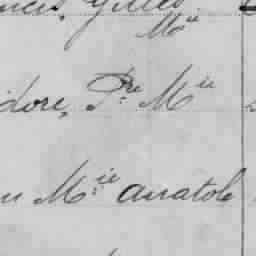 Gilles.
Mie
idore, Pre Mie
Mie anatole